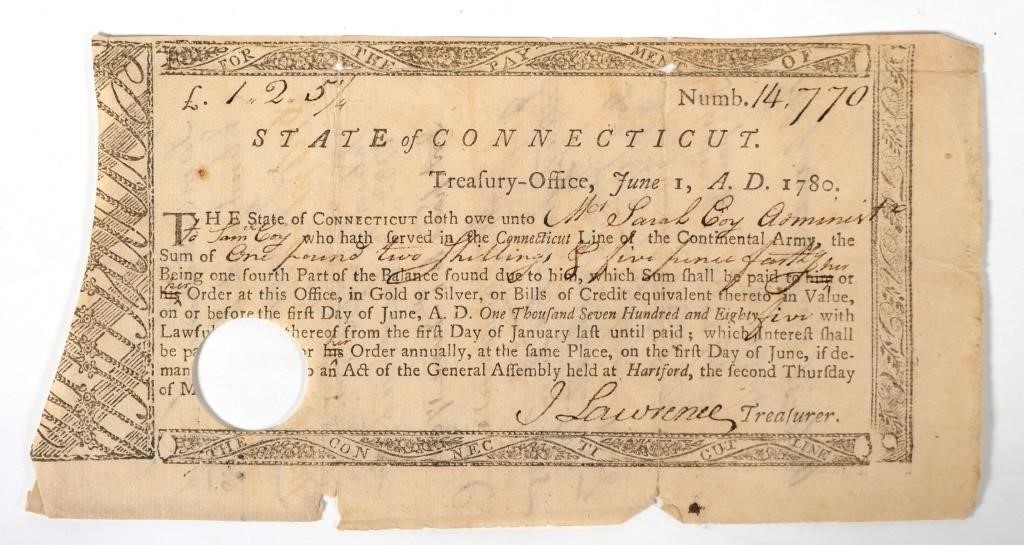 FOR THE PAY MEN OF
£. 1 " 2 " 5 1/4 Numb. 14,770
STATE of CONNECTICUT.
Treaſury-Office, June 1, A. D. 1780.
THE State of CONNECTICUT doth owe unto Mrs Sarah Coy Administrx
to Samll Coy who hath ſerved in the Connecticut Line of the Continental Army, the
Sum of One pound two Shillings & five pence farthg
Being one fourth Part of the Balance found due to him, which Sum ſhall be paid to him her or
his her Order at this Office, in Gold or Silver, or Bills of Credit equivalent thereto in Value,
on or before the firſt Day of June, A. D. One Thouſand Seven Hundred and Eighty five with
Lawful thereof from the firſt Day of January laſt until paid; which Intereſt ſhall
be pa or his her Order annually, at the ſame Place, on the firſt Day of June, if de-
man to an Act of the General Aſſembly held at Hartford, the ſecond Thurſday
of M
J Lawrence Treaſurer.
THE CON NEC TI CUT LINE